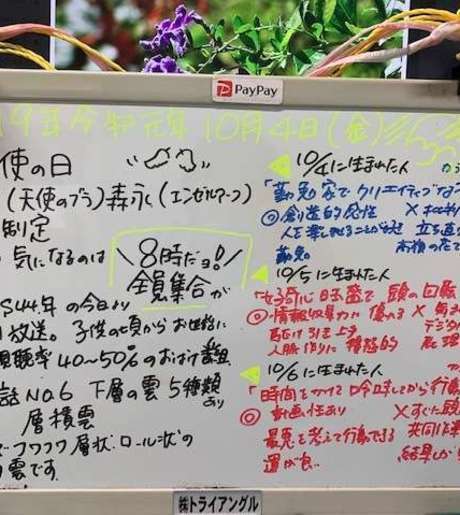 PayPay
19年令和元年10月4日(金)
使の日
(天使のブラ)森永(エンゼルマーク)
制定
気になるのは
8時だョ!
全員集合が
S44年の今日より
放送。子供の頃からお世話に
視聴率40〜50%のおばけ番組
話No.6 下層の雲5種類
あり
層積雲
でフワフワ層状・ロール状の
雲です。
10/4に生まれた人
「勤勉家でクリエイティブな
◎創造的感性
人を楽しませることが好き
勤勉。
10/5に生まれた人
「好奇心旺盛で頭の回転
◎情報収集力に優れる ×
駆け引き上手 デジタル
人脈作りに積極的
10/6に生まれた人
「時間をかけて吟味してから行動
◎計画性あり ×すぐ
最悪を考えて行動できる 共同
運が良
㈱トライアングル